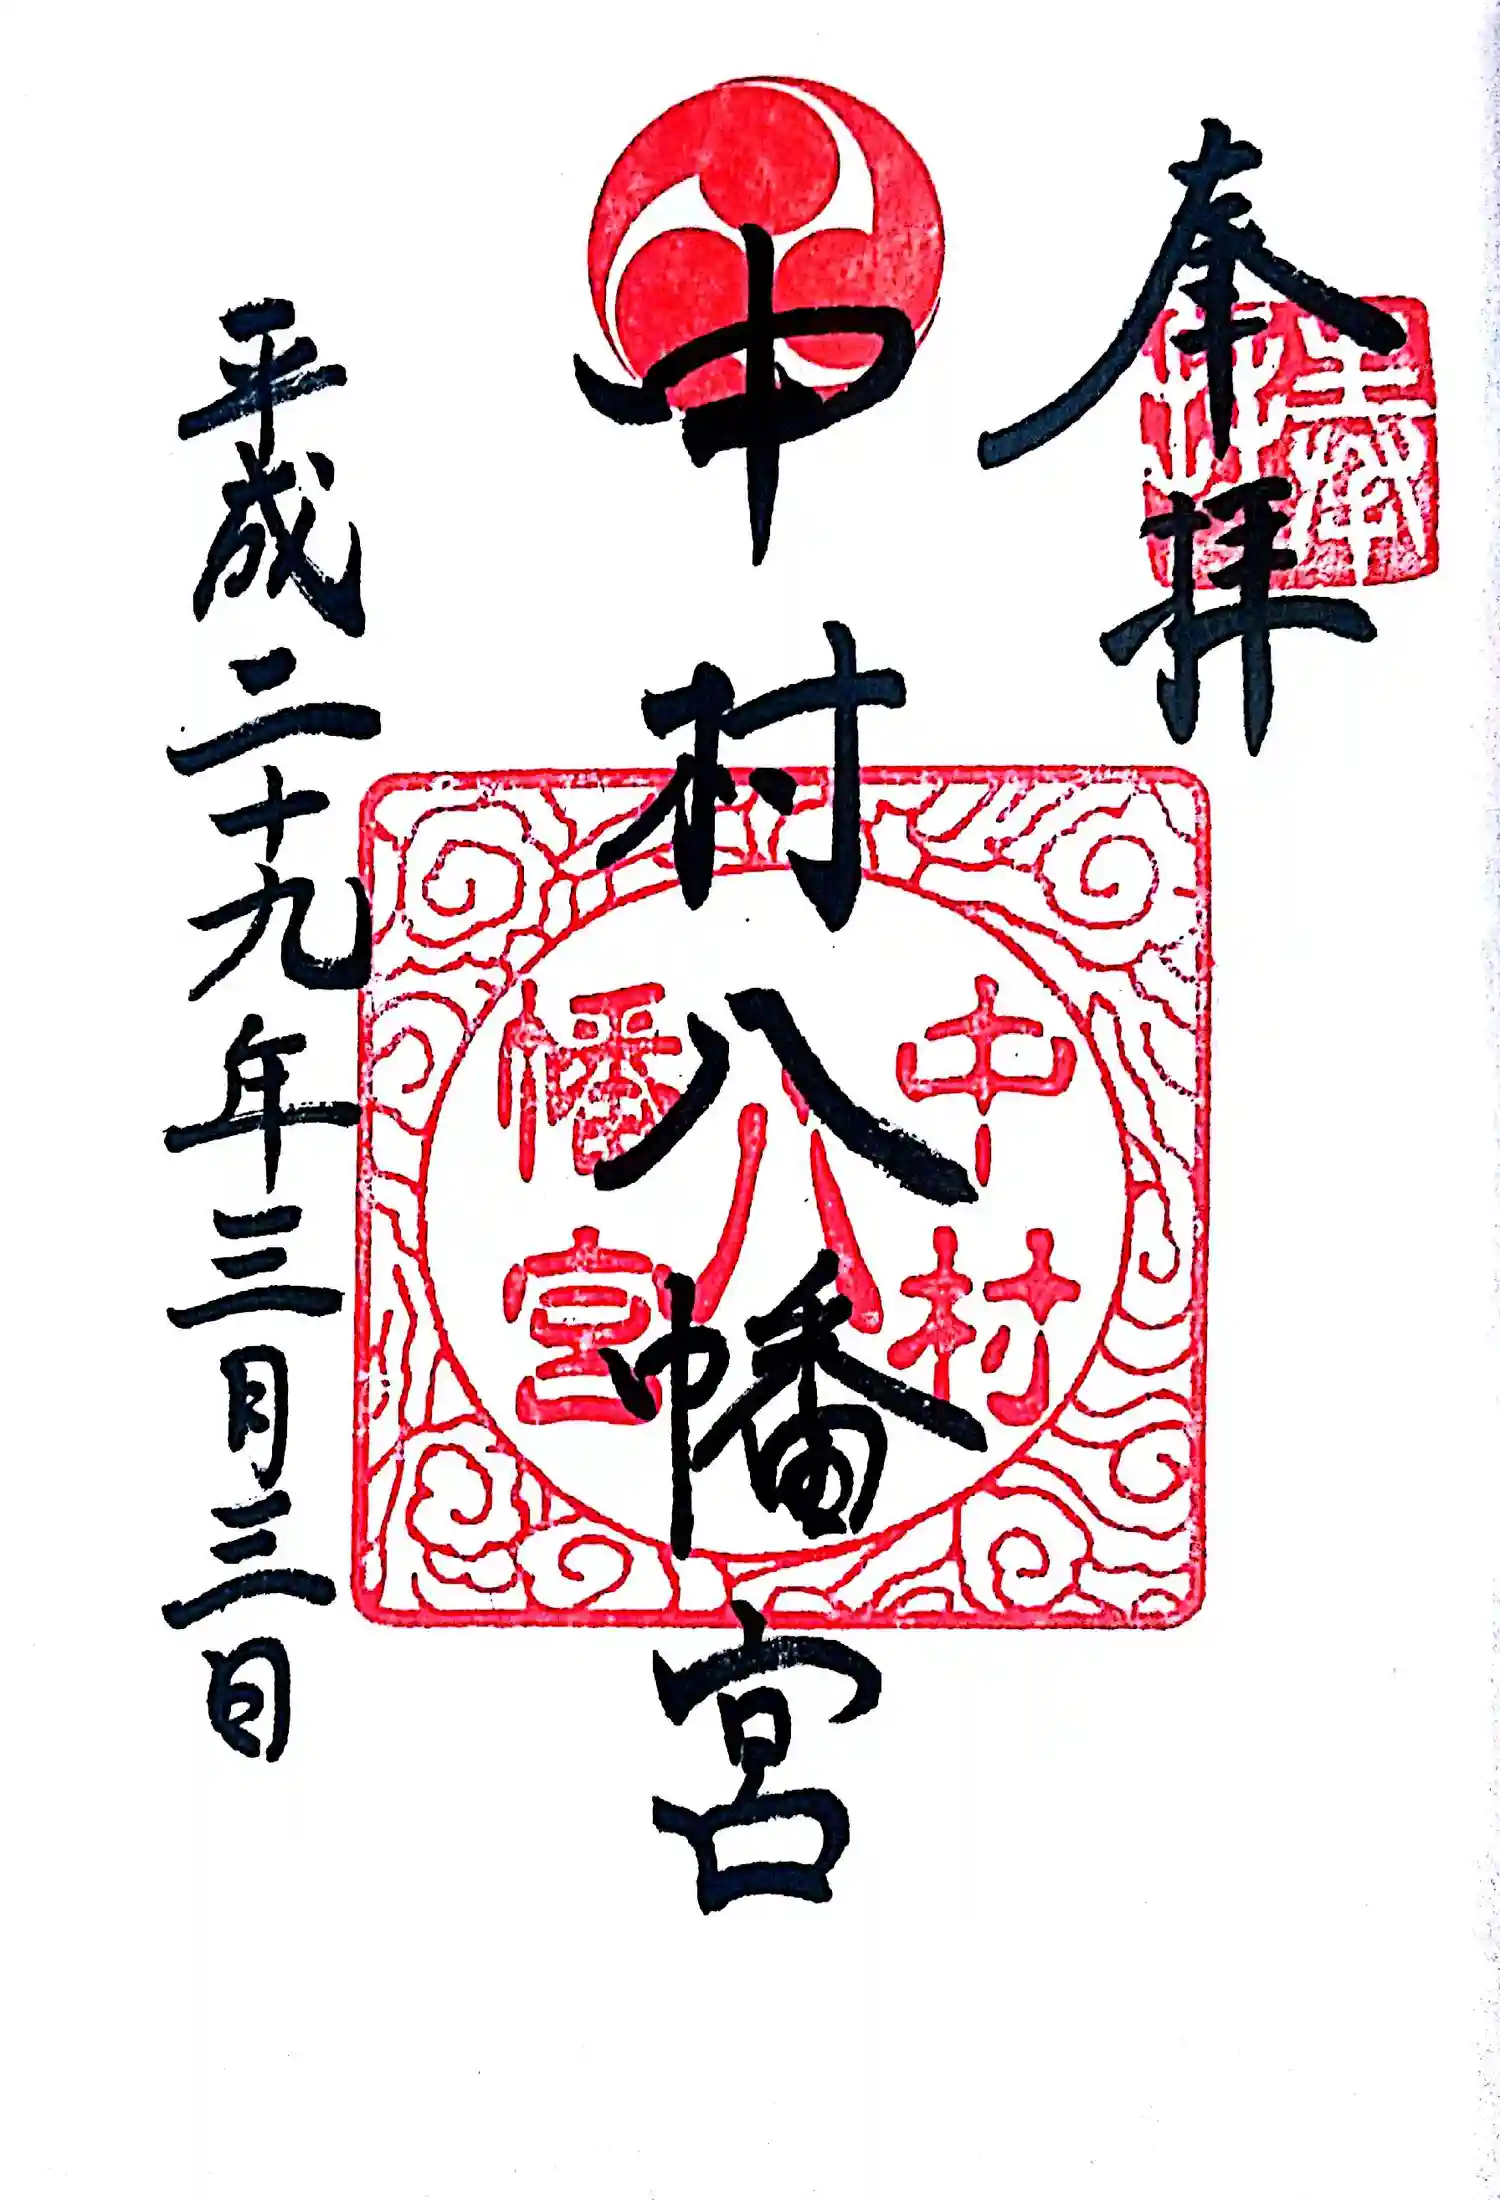 奉拝
中村八幡宮
中村
八
幡宮
平成二十九年三月三日